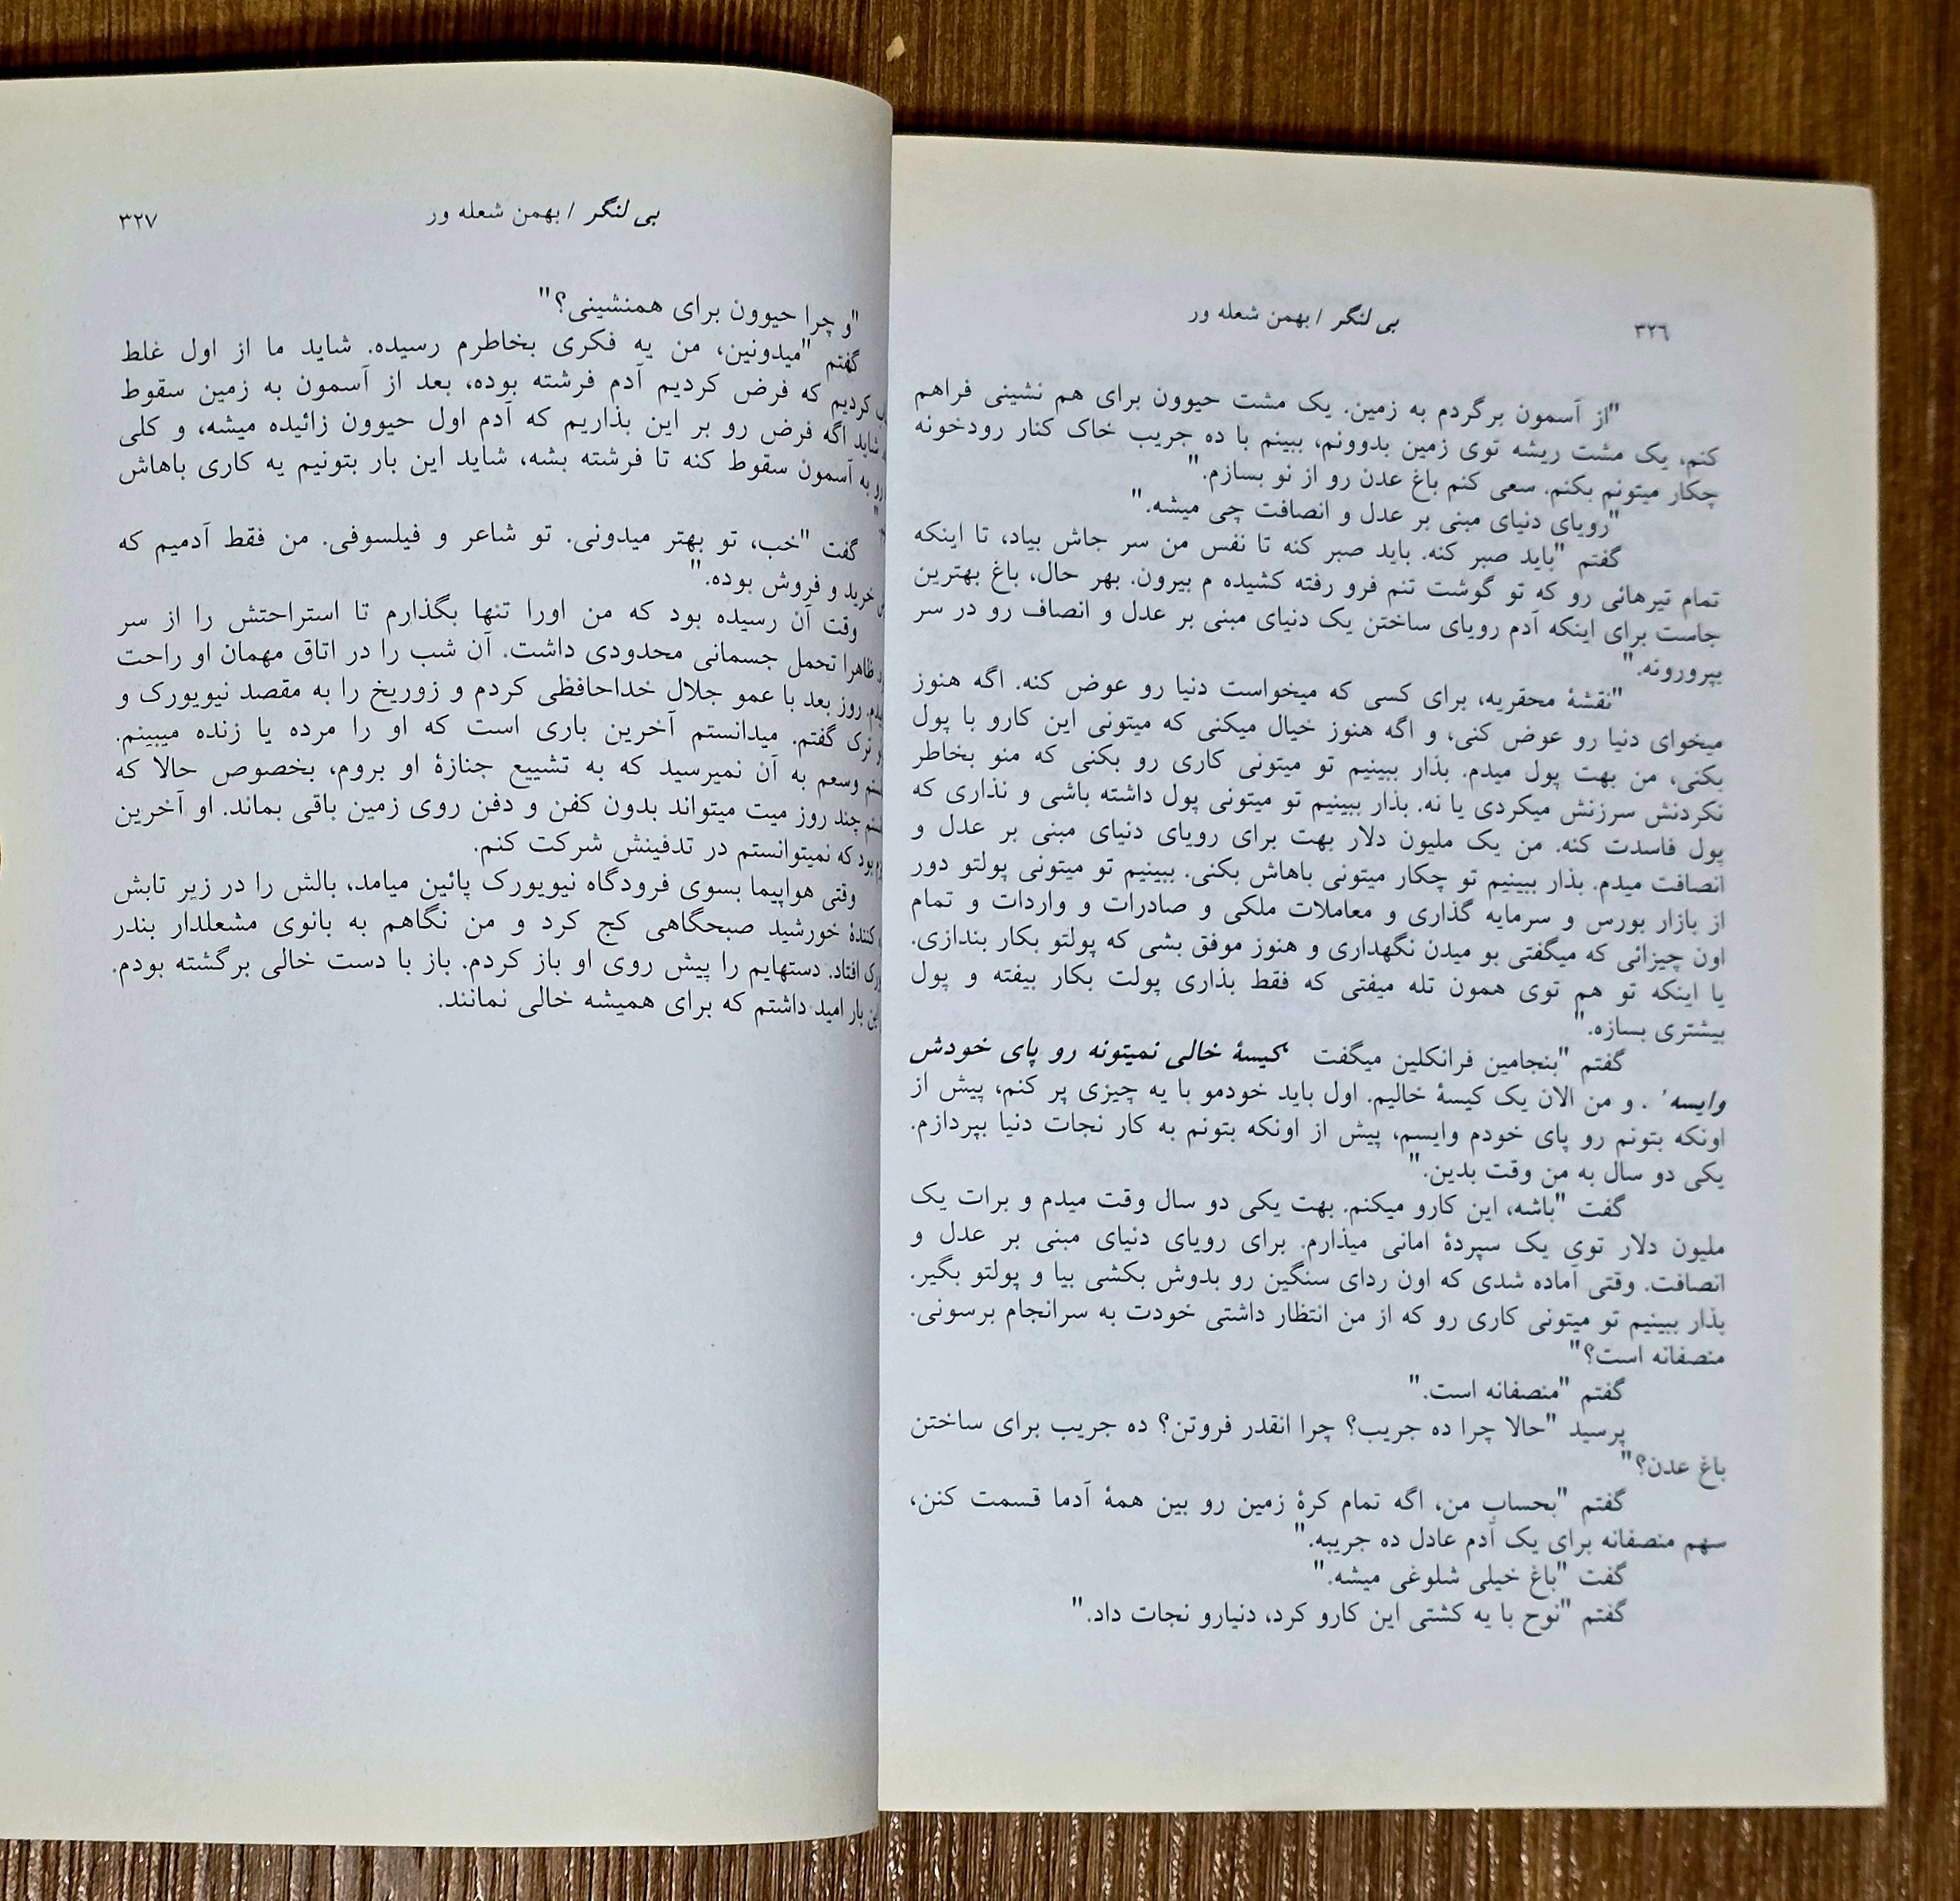 ۳۲٦
بی لنگر / بهمن شعله ور
"از آسمون برگردم به زمین. یک مشت حیوون برای هم نشینی فراهم
کنم، یک مشت ریشه توی زمین بدوونم، ببینم با ده جریب خاک کنار رودخونه
چکار میتونم بکنم. سعی کنم باغ عدن رو از نو بسازم."
"رویای دنیای مبنی بر عدل و انصافت چی میشه."
گفتم "باید صبر کنه. باید صبر کنه تا نفس من سر جاش بیاد، تا اینکه
تمام تیرهائی رو که تو گوشت تنم فرو رفته کشیده م بیرون. بهر حال، باغ بهترین
جاست برای اینکه آدم رویای ساختن یک دنیای مبنی بر عدل و انصاف رو در سر
بپرورونه."
"نقشهٔ محقریه، برای کسی که میخواست دنیا رو عوض کنه. اگه هنوز
میخوای دنیا رو عوض کنی، و اگه هنوز خیال میکنی که میتونی این کارو با پول
بکنی، من بهت پول میدم. بذار ببینیم تو میتونی کاری رو بکنی که منو بخاطر
نکردنش سرزنش میکردی یا نه. بذار ببینیم تو میتونی پول داشته باشی و نذاری که
پول فاسدت کنه. من یک ملیون دلار بهت برای رویای دنیای مبنی بر عدل و
انصافت میدم. بذار ببینیم تو چکار میتونی باهاش بکنی. ببینیم تو میتونی پولتو دور
از بازار بورس و سرمایه گذاری و معاملات ملکی و صادرات و واردات و تمام
اون چیزائی که میگفتی بو میدن نگهداری و هنوز موفق بشی که پولتو بکار بندازی.
یا اینکه تو هم توی همون تله میفتی که فقط بذاری پولت بکار بیفته و پول
بیشتری بسازه."
گفتم "بنجامین فرانکلین میگفت ‘کیسهٔ خالی نمیتونه رو پای خودش
وایسه’. و من الان یک کیسهٔ خالیم. اول باید خودمو با یه چیزی پر کنم، پیش از
اونکه بتونم رو پای خودم وایسم، پیش از اونکه بتونم به کار نجات دنیا بپردازم.
یکی دو سال به من وقت بدین."
گفت "باشه، این کارو میکنم. بهت یکی دو سال وقت میدم و برات یک
ملیون دلار توی یک سپردهٔ امانی میذارم. برای رویای دنیای مبنی بر عدل و
انصافت. وقتی آماده شدی که اون ردای سنگین رو بدوش بکشی بیا و پولتو بگیر.
بذار ببینیم تو میتونی کاری رو که از من انتظار داشتی خودت به سرانجام برسونی.
منصفانه است؟"
گفتم "منصفانه است."
پرسید "حالا چرا ده جریب؟ چرا انقدر فروتن؟ ده جریب برای ساختن
باغ عدن؟"
گفتم "بحساب من، اگه تمام کرهٔ زمین رو بین همهٔ آدما قسمت کنن،
سهم منصفانه برای یک آدم عادل ده جریبه."
گفت "باغ خیلی شلوغی میشه."
گفتم "نوح با یه کشتی این کارو کرد، دنیارو نجات داد."
بی لنگر / بهمن شعله ور
۳۲۷
"و چرا حیوون برای همنشینی؟"
گفتم "میدونین، من یه فکری بخاطرم رسیده. شاید ما از اول غلط
کردیم که فرض کردیم آدم فرشته بوده، بعد از آسمون به زمین سقوط
شاید اگه فرض رو بر این بذاریم که آدم اول حیوون زائیده میشه، و کلی
رو به آسمون سقوط کنه تا فرشته بشه، شاید این بار بتونیم یه کاری باهاش
گفت "خب، تو بهتر میدونی. تو شاعر و فیلسوفی. من فقط آدمیم که
خرید و فروش بوده."
وقت آن رسیده بود که من اورا تنها بگذارم تا استراحتش را از سر
ظاهرا تحمل جسمانی محدودی داشت. آن شب را در اتاق مهمان او راحت
روز بعد با عمو جلال خداحافظی کردم و زوریخ را به مقصد نیویورک و
ترک گفتم. میدانستم آخرین باری است که او را مرده یا زنده میبینم.
وسعم به آن نمیرسید که به تشییع جنازهٔ او بروم، بخصوص حالا که
چند روز میت میتواند بدون کفن و دفن روی زمین باقی بماند. او آخرین
بود که نمیتوانستم در تدفینش شرکت کنم.
وقتی هواپیما بسوی فرودگاه نیویورک پائین میامد، بالش را در زیر تابش
کنندهٔ خورشید صبحگاهی کج کرد و من نگاهم به بانوی مشعلدار بندر
افتاد. دستهایم را پیش روی او باز کردم. باز با دست خالی برگشته بودم.
بار امید داشتم که برای همیشه خالی نمانند.